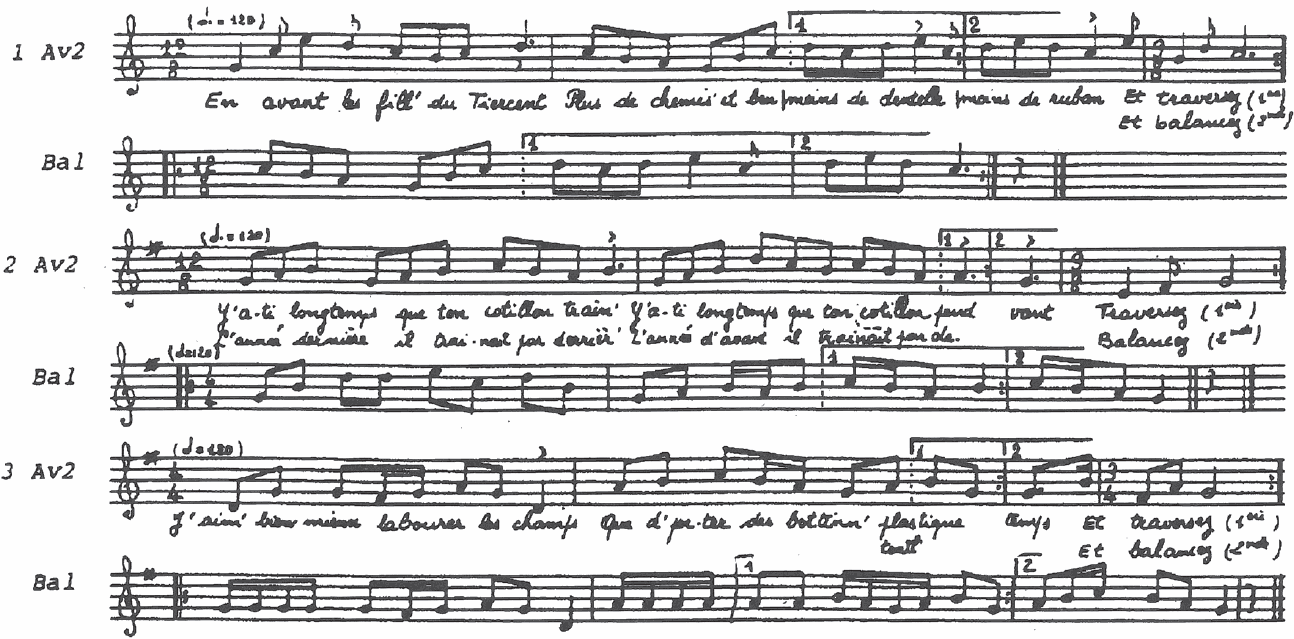 (♩. = 120)
1 Av2
12 8
1
2
9 8
En avant les fill' du Tiercent Plus de chemis' et moins de dentelle moins de ruban Et traversez (1ère)
Et balancez (2nde)
Bal
12 8
1
2
(♩. = 120)
2 Av2
12 8
1
2
9 8
Y'a-ti longtemps que ton cotillon train' Y'a-ti longtemps que ton cotillon pend vant Traversez (1ère)
L'année dernière il trai-nait par derrièr' L'année d'avant il trainait par de. Balancez (2nde)
(♩=120)
Bal
4 4
1
2
(♩=120)
3 Av2
4 4
1
2
3 4
J'aim' bien mieux labourer les champs Que d'por-ter des bottinn' plastique temps Et traversez (1ère)
tout l' Et balancez (2nde)
Bal
1
2